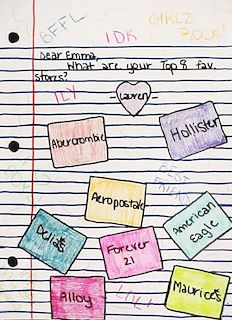 BFFL
IDK
GIRLZ
ROCK!
Dear Emma,
What are your Top 8 fav.
stores?
ILY
Lauren
Abercrombie
Hollister
BEST
Aeropostale
American
Eagle
Delia's
Forever
21
Alloy
LOL!
Maurice's